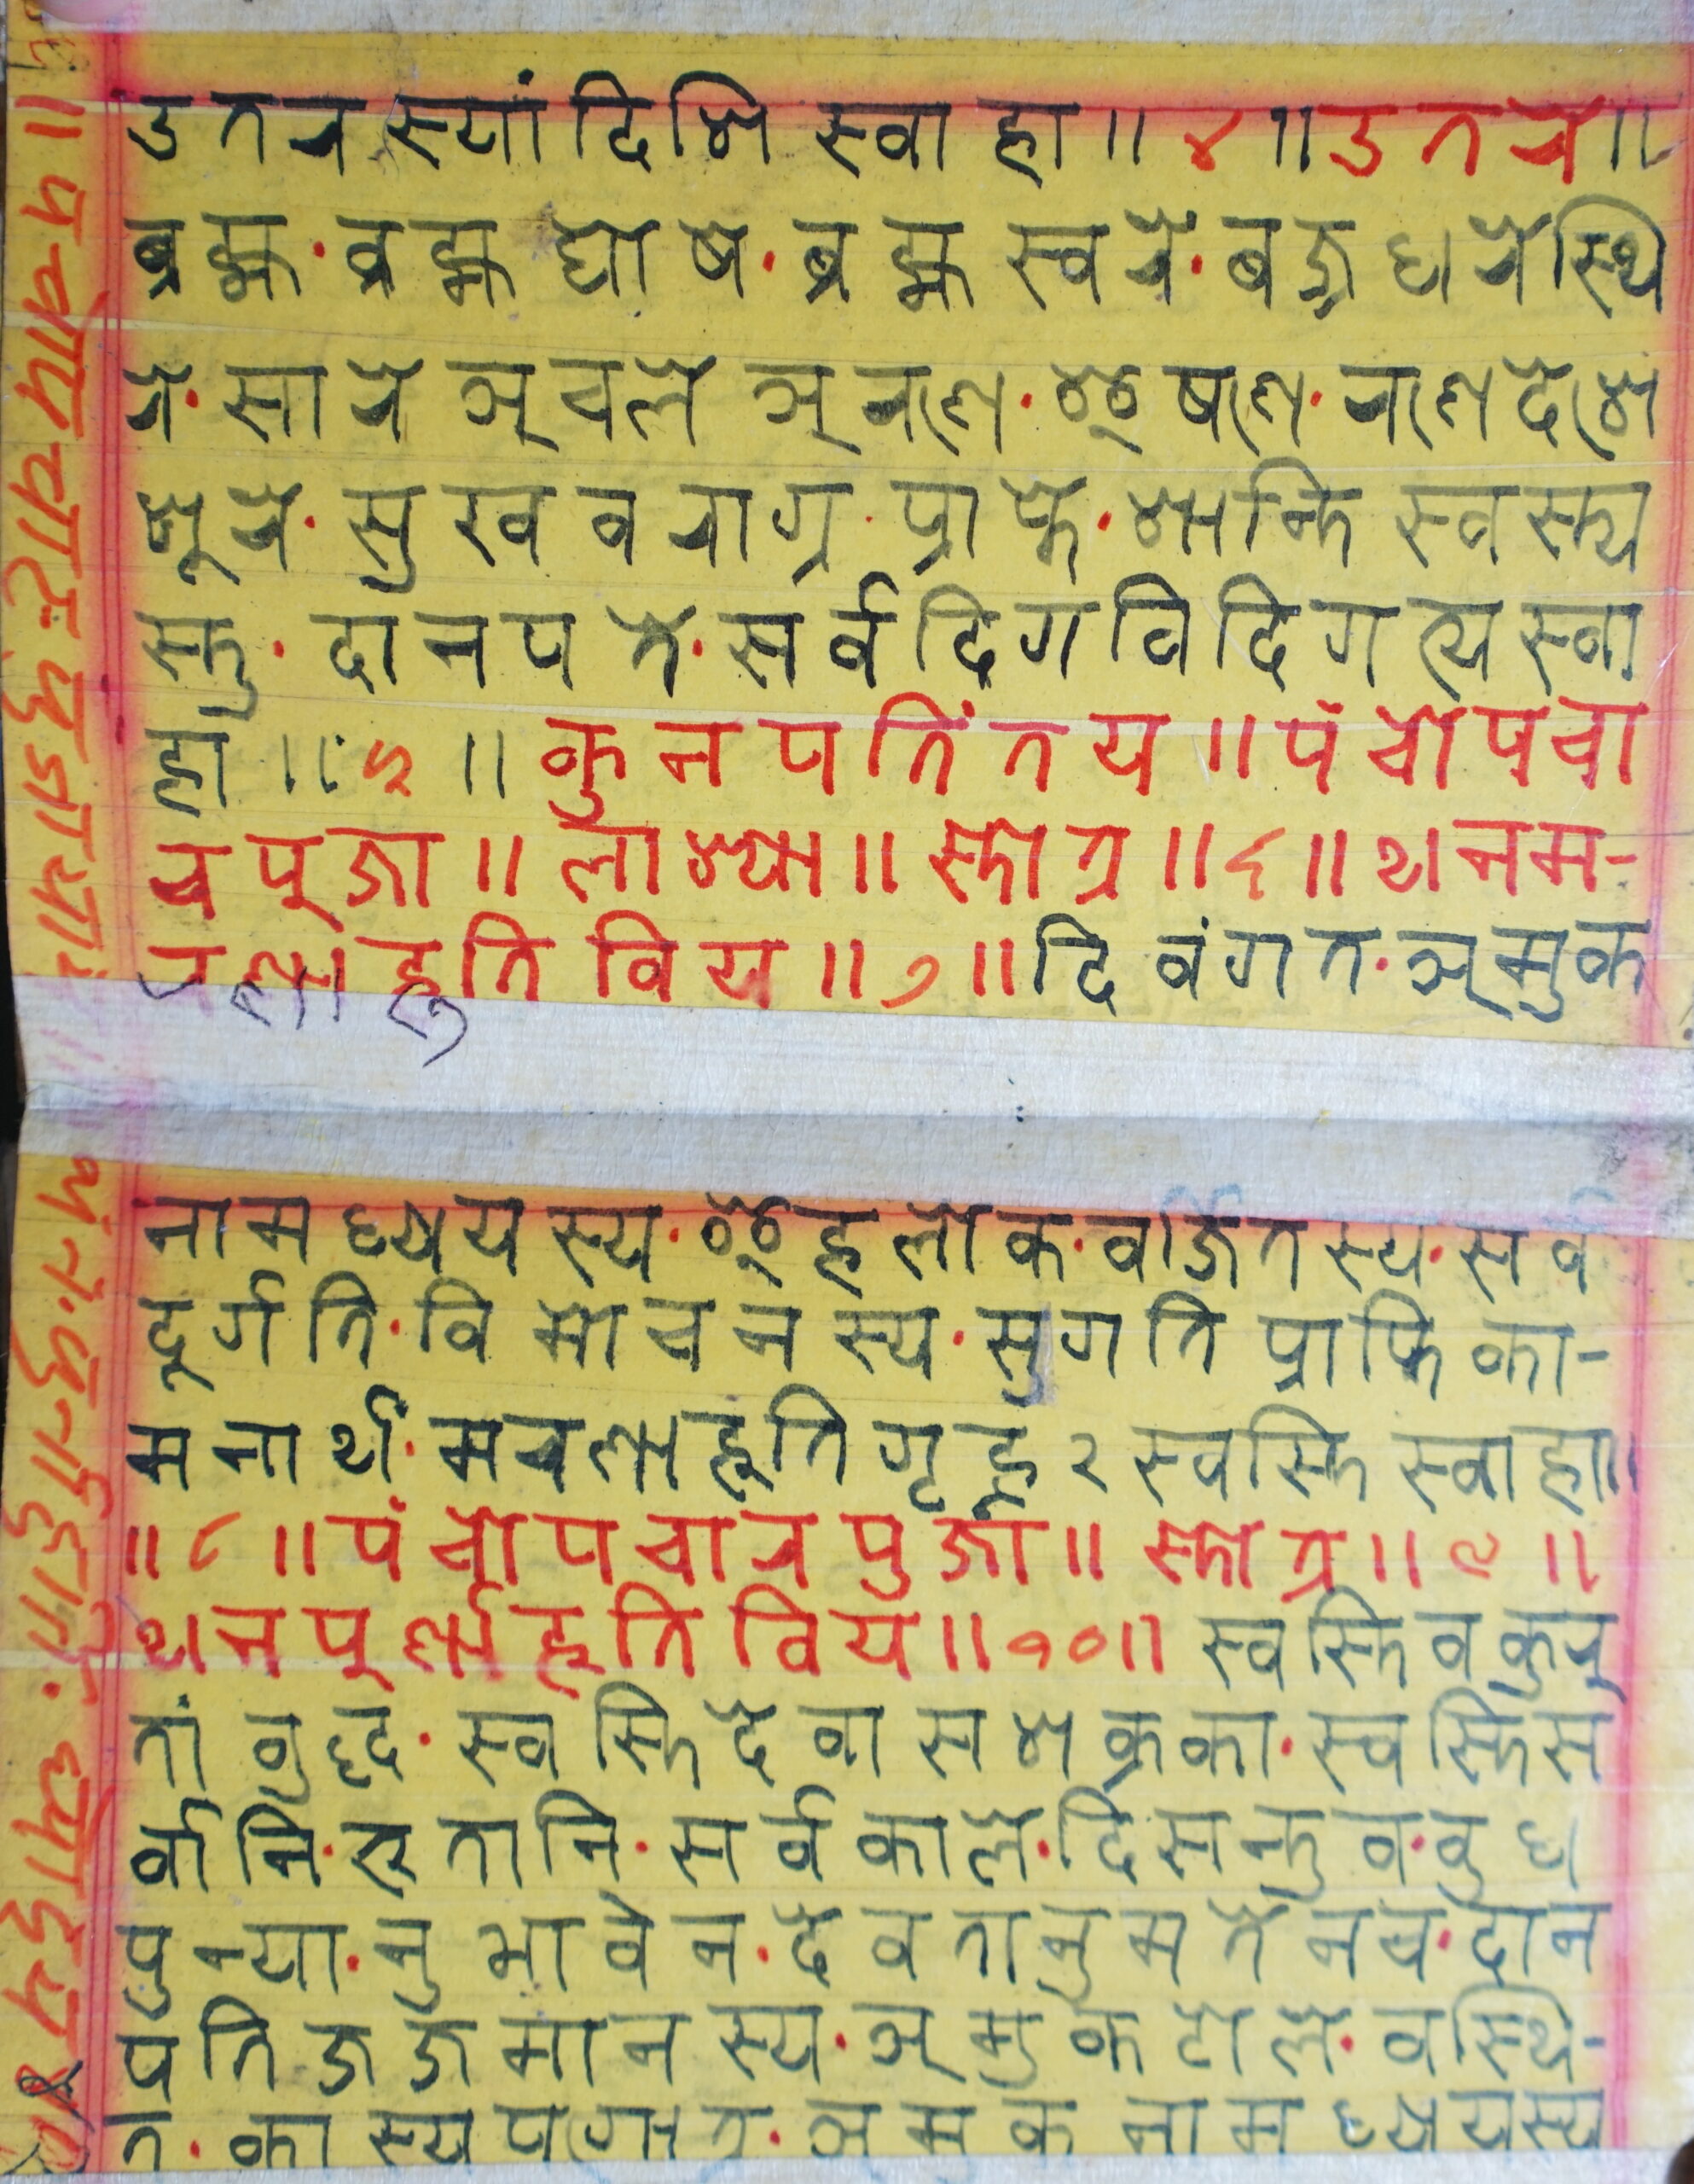 उतरस्यांदिशि स्वाहा॥ ४ ॥उतरे॥
ब्रह्म·ब्रह्मघोषे·ब्रह्मस्वरे·बज्रधरेस्थि
रे·सारे अचले अरणे·इषणे·रणेदेश
शूरे·सुखवराग्र·प्राप्ते·शान्तिस्वस्त्य
स्तु·दानपते·सर्वदिगविदिगत्यस्वा
हा॥ ५ ॥कुनपतिंतय॥पंचोपचा
रपूजा॥लाश्या॥स्तोत्र॥ ६ ॥थनम-
चलाहुतिविय॥ ७ ॥दिवंगत·अमुक
नामध्येयस्य·इहलोक·वर्जितस्य·सर्व
दूर्गति·विमोचनस्य·सुगतिप्राप्तिका-
मनार्थं·मचलाहूतिगृह्ण२स्वस्तिस्वाहा॥
॥ ८ ॥पंचोपचारपुजा॥स्तोत्र॥ ९ ॥
थनपूर्णाहूतिविय॥ १० ॥स्वस्तिवकुरू
तां बुद्ध·स्वस्तिदेवासशक्रका·स्वस्तिस
र्वानि·भूतानि·सर्वकाले·दिसन्तुव·बुध
पुन्या·नुभावेन·देवतानुमतेनच·दान
पतिजजमानस्य·अमुकटोले·वस्थि-
त·कास्यपगोत्र·अमुकनामध्येयस्य